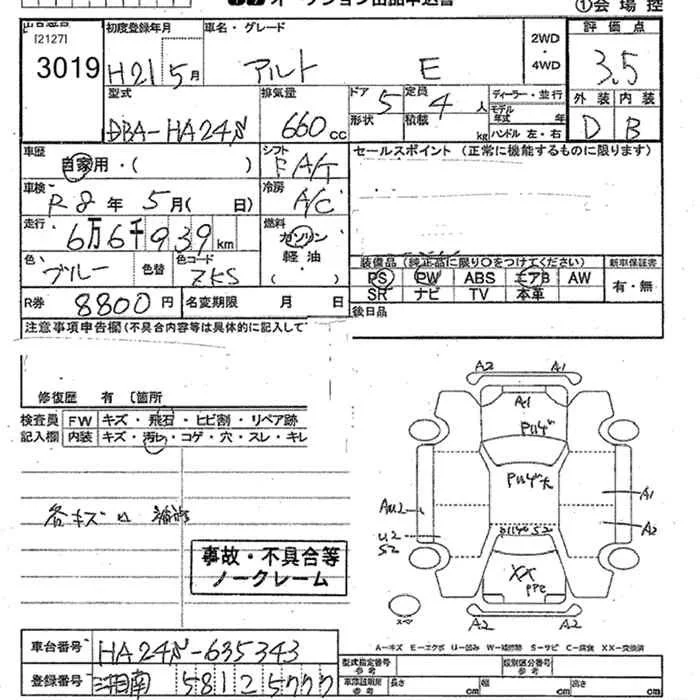 ①会場控
[2127]
3019
初度登録年月
H21 5月
車名・グレード
アルト E
2WD
・
4WD
評価点
3.5
型式
DBA-HA24S
排気量
660cc
ドア 5
形状
定員 4人
積載 kg
ディーラー・並行
モデル年式 年
ハンドル 左・右
外装 内装
D B
車歴
自家用・( )
シフト
FA/T
セールスポイント (正常に機能するものに限ります)
車検
R8年 5月( 日)
冷房
A/C
走行
6万6千939km
燃料
ガソリン
軽油
( )
色
ブルー
色替
色コード
ZKS
装備品 (純正品に限り○をつけてください)
新車保証書
PS PW ABS エアB AW
SR ナビ TV 本革
有・無
R券 8800円
名変期限 月 日
後日品
注意事項申告欄(不具合内容等は具体的に記入して
修復歴 有 〔箇所
検査員記入欄
FW キズ・飛石・ヒビ割・リペア跡
内装 キズ・汚れ・コゲ・穴・スレ・キレ
各キズ凹補修
事故・不具合等
ノークレーム
A2 A1
A1
A1
A2
U2
S2
XX
A2 A2
スペ
A－キズ E－エクボ U－凹み W－補修跡 S－サビ C－腐食 XX－交換済
車台番号 HA24S-635343
登録番号 湘南 581 2 5777
型式指定番号 参考
類別区分番号 参考
長さ cm 幅 cm 高さ cm